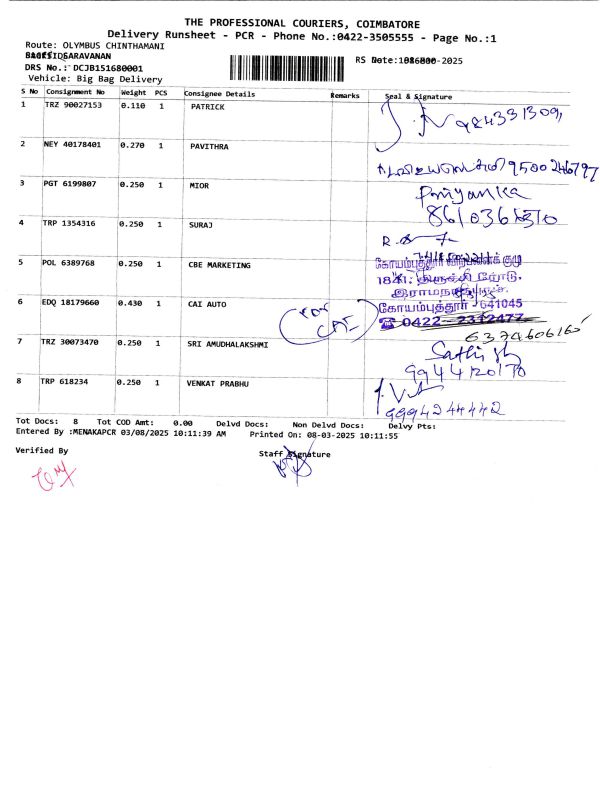 THE PROFESSIONAL COURIERS, COIMBATORE
Delivery Runsheet - PCR - Phone No.:0422-3505555 - Page No.:1
Route: OLYMBUS CHINTHAMANI
SARAVANAN
RS Date: -2025
DRS No.: DCJB151680001
Vehicle: Big Bag Delivery
S No Consignment No Weight PCS Consignee Details Remarks Seal & Signature
1 TRZ 90027153 0.110 1 PATRICK
2 NEY 40178401 0.270 1 PAVITHRA
9500246797
3 PGT 6199807 0.250 1 MIOR Priyanka
4 TRP 1354316 0.250 1 SURAJ
5 POL 6389768 0.250 1 CBE MARKETING
கோயம்புத்தூர் விற்பனைக் குழு
6 EDQ 18179660 0.430 1 CAI AUTO
கோயம்புத்தூர் - 641045
☎ 0422 - 2312477
7 TRZ 30073470 0.250 1 SRI AMUDHALAKSHMI
8 TRP 618234 0.250 1 VENKAT PRABHU
9994244442
Tot Docs: 8 Tot COD Amt: 0.00 Delvd Docs: Non Delvd Docs: Delvy Pts:
Entered By :MENAKAPCR 03/08/2025 10:11:39 AM Printed On: 08-03-2025 10:11:55
Verified By Staff Signature